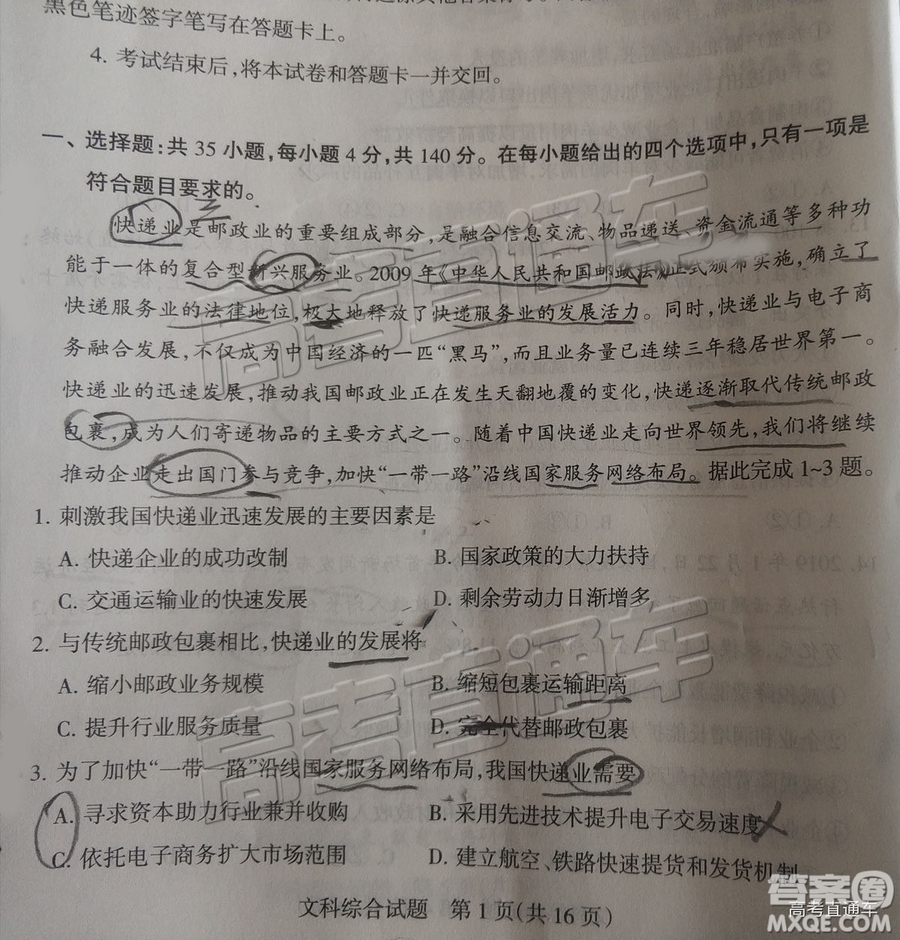 黑色笔迹签字笔写在答题卡上。
4. 考试结束后,将本试卷和答题卡一并交回。
一、选择题:共 35 小题,每小题 4 分,共 140 分。在每小题给出的四个选项中,只有一项是
符合题目要求的。
快递业是邮政业的重要组成部分,是融合信息交流、物品递送、资金流通等多种功
能于一体的复合型新兴服务业。2009 年《中华人民共和国邮政法》正式颁布实施,确立了
快递服务业的法律地位,极大地释放了快递服务业的发展活力。同时,快递业与电子商
务融合发展,不仅成为中国经济的一匹“黑马”,而且业务量已连续三年稳居世界第一。
快递业的迅速发展,推动我国邮政业正在发生天翻地覆的变化,快递逐渐取代传统邮政
包裹,成为人们寄递物品的主要方式之一。随着中国快递业走向世界领先,我们将继续
推动企业走出国门参与竞争,加快“一带一路”沿线国家服务网络布局。据此完成 1~3 题。
1. 刺激我国快递业迅速发展的主要因素是
A. 快递企业的成功改制 B. 国家政策的大力扶持
C. 交通运输业的快速发展 D. 剩余劳动力日渐增多
2. 与传统邮政包裹相比,快递业的发展将
A. 缩小邮政业务规模 B. 缩短包裹运输距离
C. 提升行业服务质量 D. 完全代替邮政包裹
3. 为了加快“一带一路”沿线国家服务网络布局,我国快递业需要
A. 寻求资本助力行业兼并收购 B. 采用先进技术提升电子交易速度
C. 依托电子商务扩大市场范围 D. 建立航空、铁路快速提货和发货机制
文科综合试题 第 1 页(共 16 页)
高考直通车
高考直通车
答案圈
高考直通车
MXQE.COM